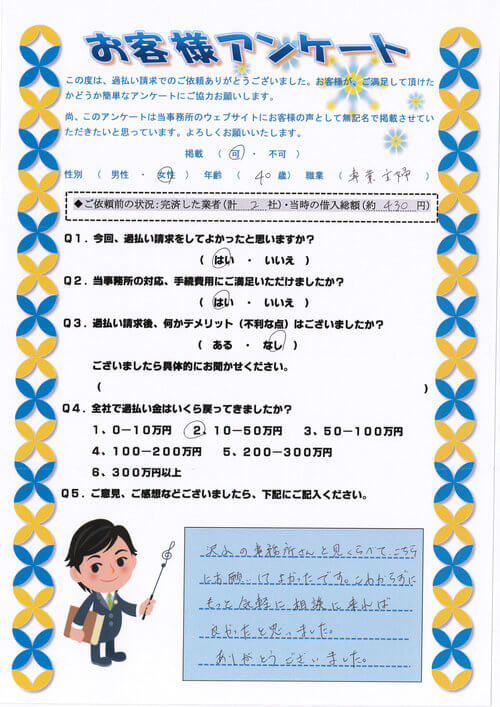 お客様アンケート
この度は、過払い請求でのご依頼ありがとうございました。お客様が、ご満足して頂けた
かどうか簡単なアンケートにご協力お願いします。
尚、このアンケートは当事務所のウェブサイトにお客様の声として無記名で掲載させてい
ただきたいと思っています。よろしくお願いいたします。
掲載 ( 可 ・ 不可 )
性別 ( 男性 ・ 女性 ) 年齢 ( 40 歳) 職業 ( 専業主婦 )
◆ご依頼前の状況:完済した業者(計 2 社)・当時の借入総額(約 430 円)
Q1.今回、過払い請求をしてよかったと思いますか?
( はい ・ いいえ )
Q2.当事務所の対応、手続費用にご満足いただけましたか?
( はい ・ いいえ )
Q3.過払い請求後、何かデメリット(不利な点)はございましたか?
( ある ・ なし )
ございましたら具体的にお聞かせください。
( )
Q4.全社で過払い金はいくら戻ってきましたか?
1、0-10万円 2、10-50万円 3、50-100万円
4、100-200万円 5、200-300万円
6、300万円以上
Q5.ご意見、ご感想などございましたら、下記にご記入ください。
沢山の事務所さんと見くらべてこちら
にお願いしてよかったです。こわがらずに
もっと気軽に相談に来れば
良かったと思いました。
ありがとうございました。